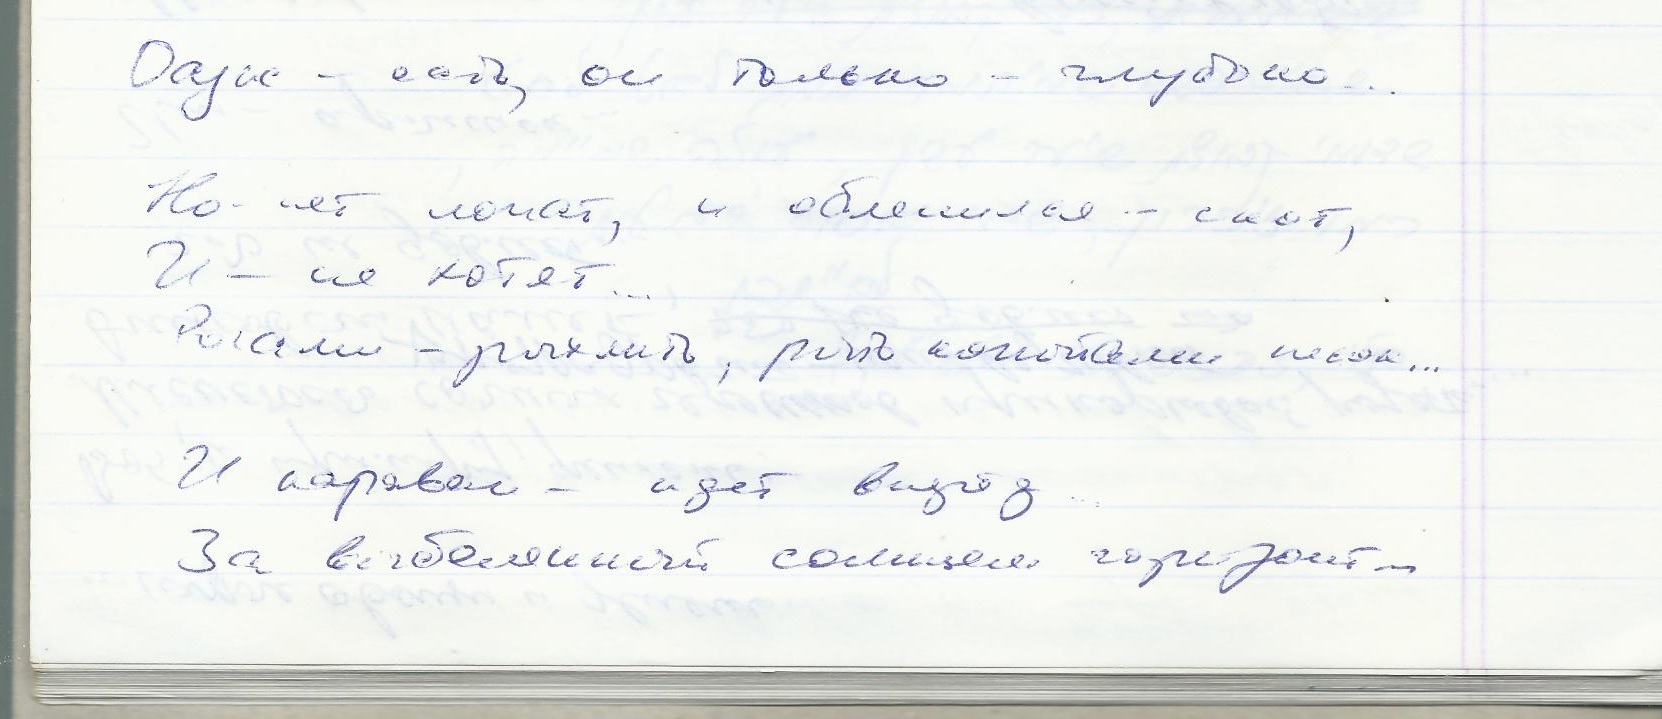 Оазис - есть, он только - глубоко...
Но - нет лопат, и обленился - скот,
И - не хотят...
Рогами - рыхлить, рыть копытами песок...
И караван - идет вперёд...
За выбеленный солнцем горизонт...